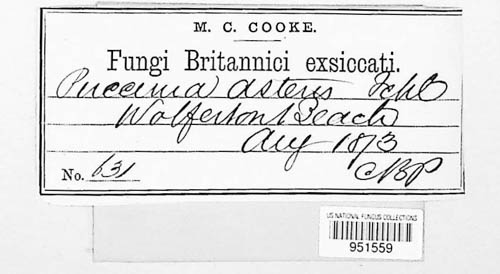 M. C. COOKE.
Fungi Britannici exsiccati.
Puccinia asteris Schl
Wolferton Beach
Aug 1873
No. 631 CBP
US NATIONAL FUNGUS COLLECTIONS
951559